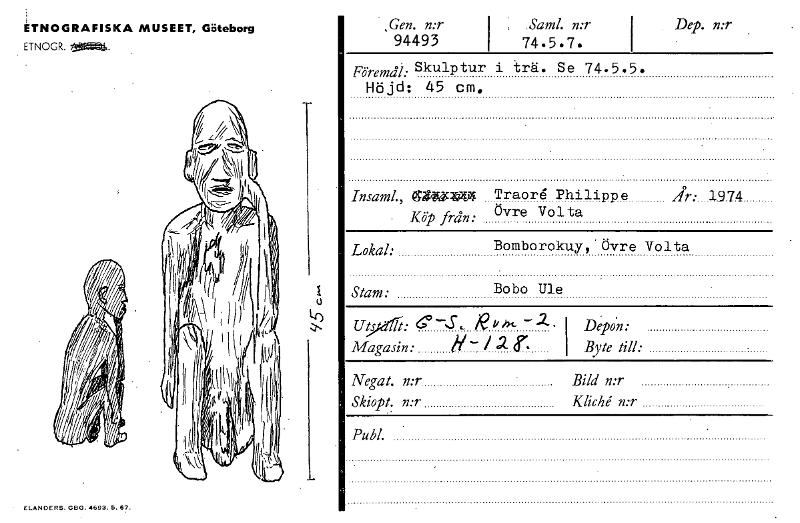 ETNOGRAFISKA MUSEET, Göteborg
ETNOGR.
45 cm
ELANDERS. GBG. 4693. 5. 67.
Gen. n:r Saml. n:r Dep. n:r
94493 74.5.7.
Föremål: Skulptur i trä. Se 74.5.5.
Höjd: 45 cm.
Insaml., Traoré Philippe År: 1974
Köp från: Övre Volta
Lokal: Bomborokuy, Övre Volta
Stam: Bobo Ule
Utställt: G-S. Rum-2. Depon:
Magasin: H-128. Byte till:
Negat. n:r Bild n:r
Skiopt. n:r Kliché n:r
Publ.